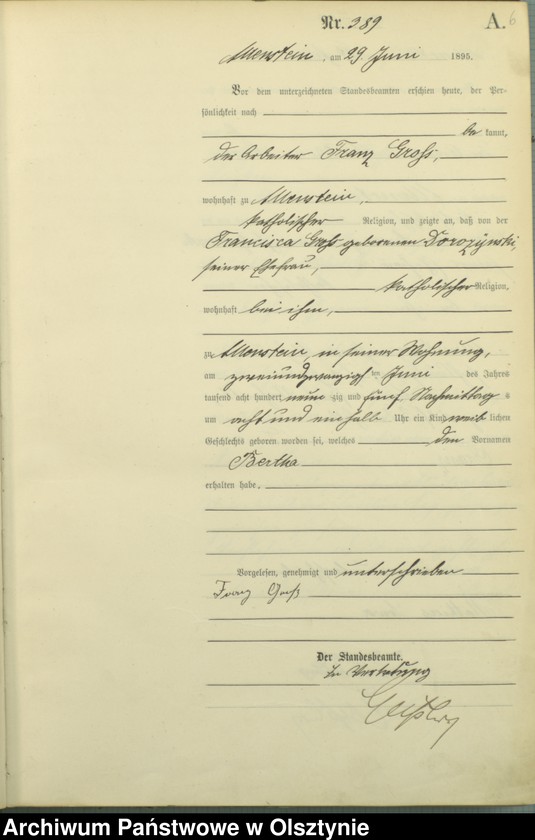 Nr. 389
A. 6
Allenstein, am 29. Juni 1895.
Vor dem unterzeichneten Standesbeamten erschien heute, der Per-
sönlichkeit nach
be kannt,
der Arbeiter Franz Groß,
wohnhaft zu Allenstein,
katholischer Religion, und zeigte an, daß von der
Francisca Groß geborenen Dorozynski,
seiner Ehefrau,
katholischer Religion,
wohnhaft bei ihm,
zu Allenstein, in seiner Wohnung,
am zweiundzwanzigsten Juni des Jahres
tausend acht hundert neun zig und fünf Nachmittag s
um acht und ein halb Uhr ein Kind weib lichen
Geschlechts geboren worden sei, welches den Vornamen
Bertha
erhalten habe.
Vorgelesen, genehmigt und unterschrieben
Franz Groß
Der Standesbeamte.
In Vertretung
Archiwum Państwowe w Olsztynie